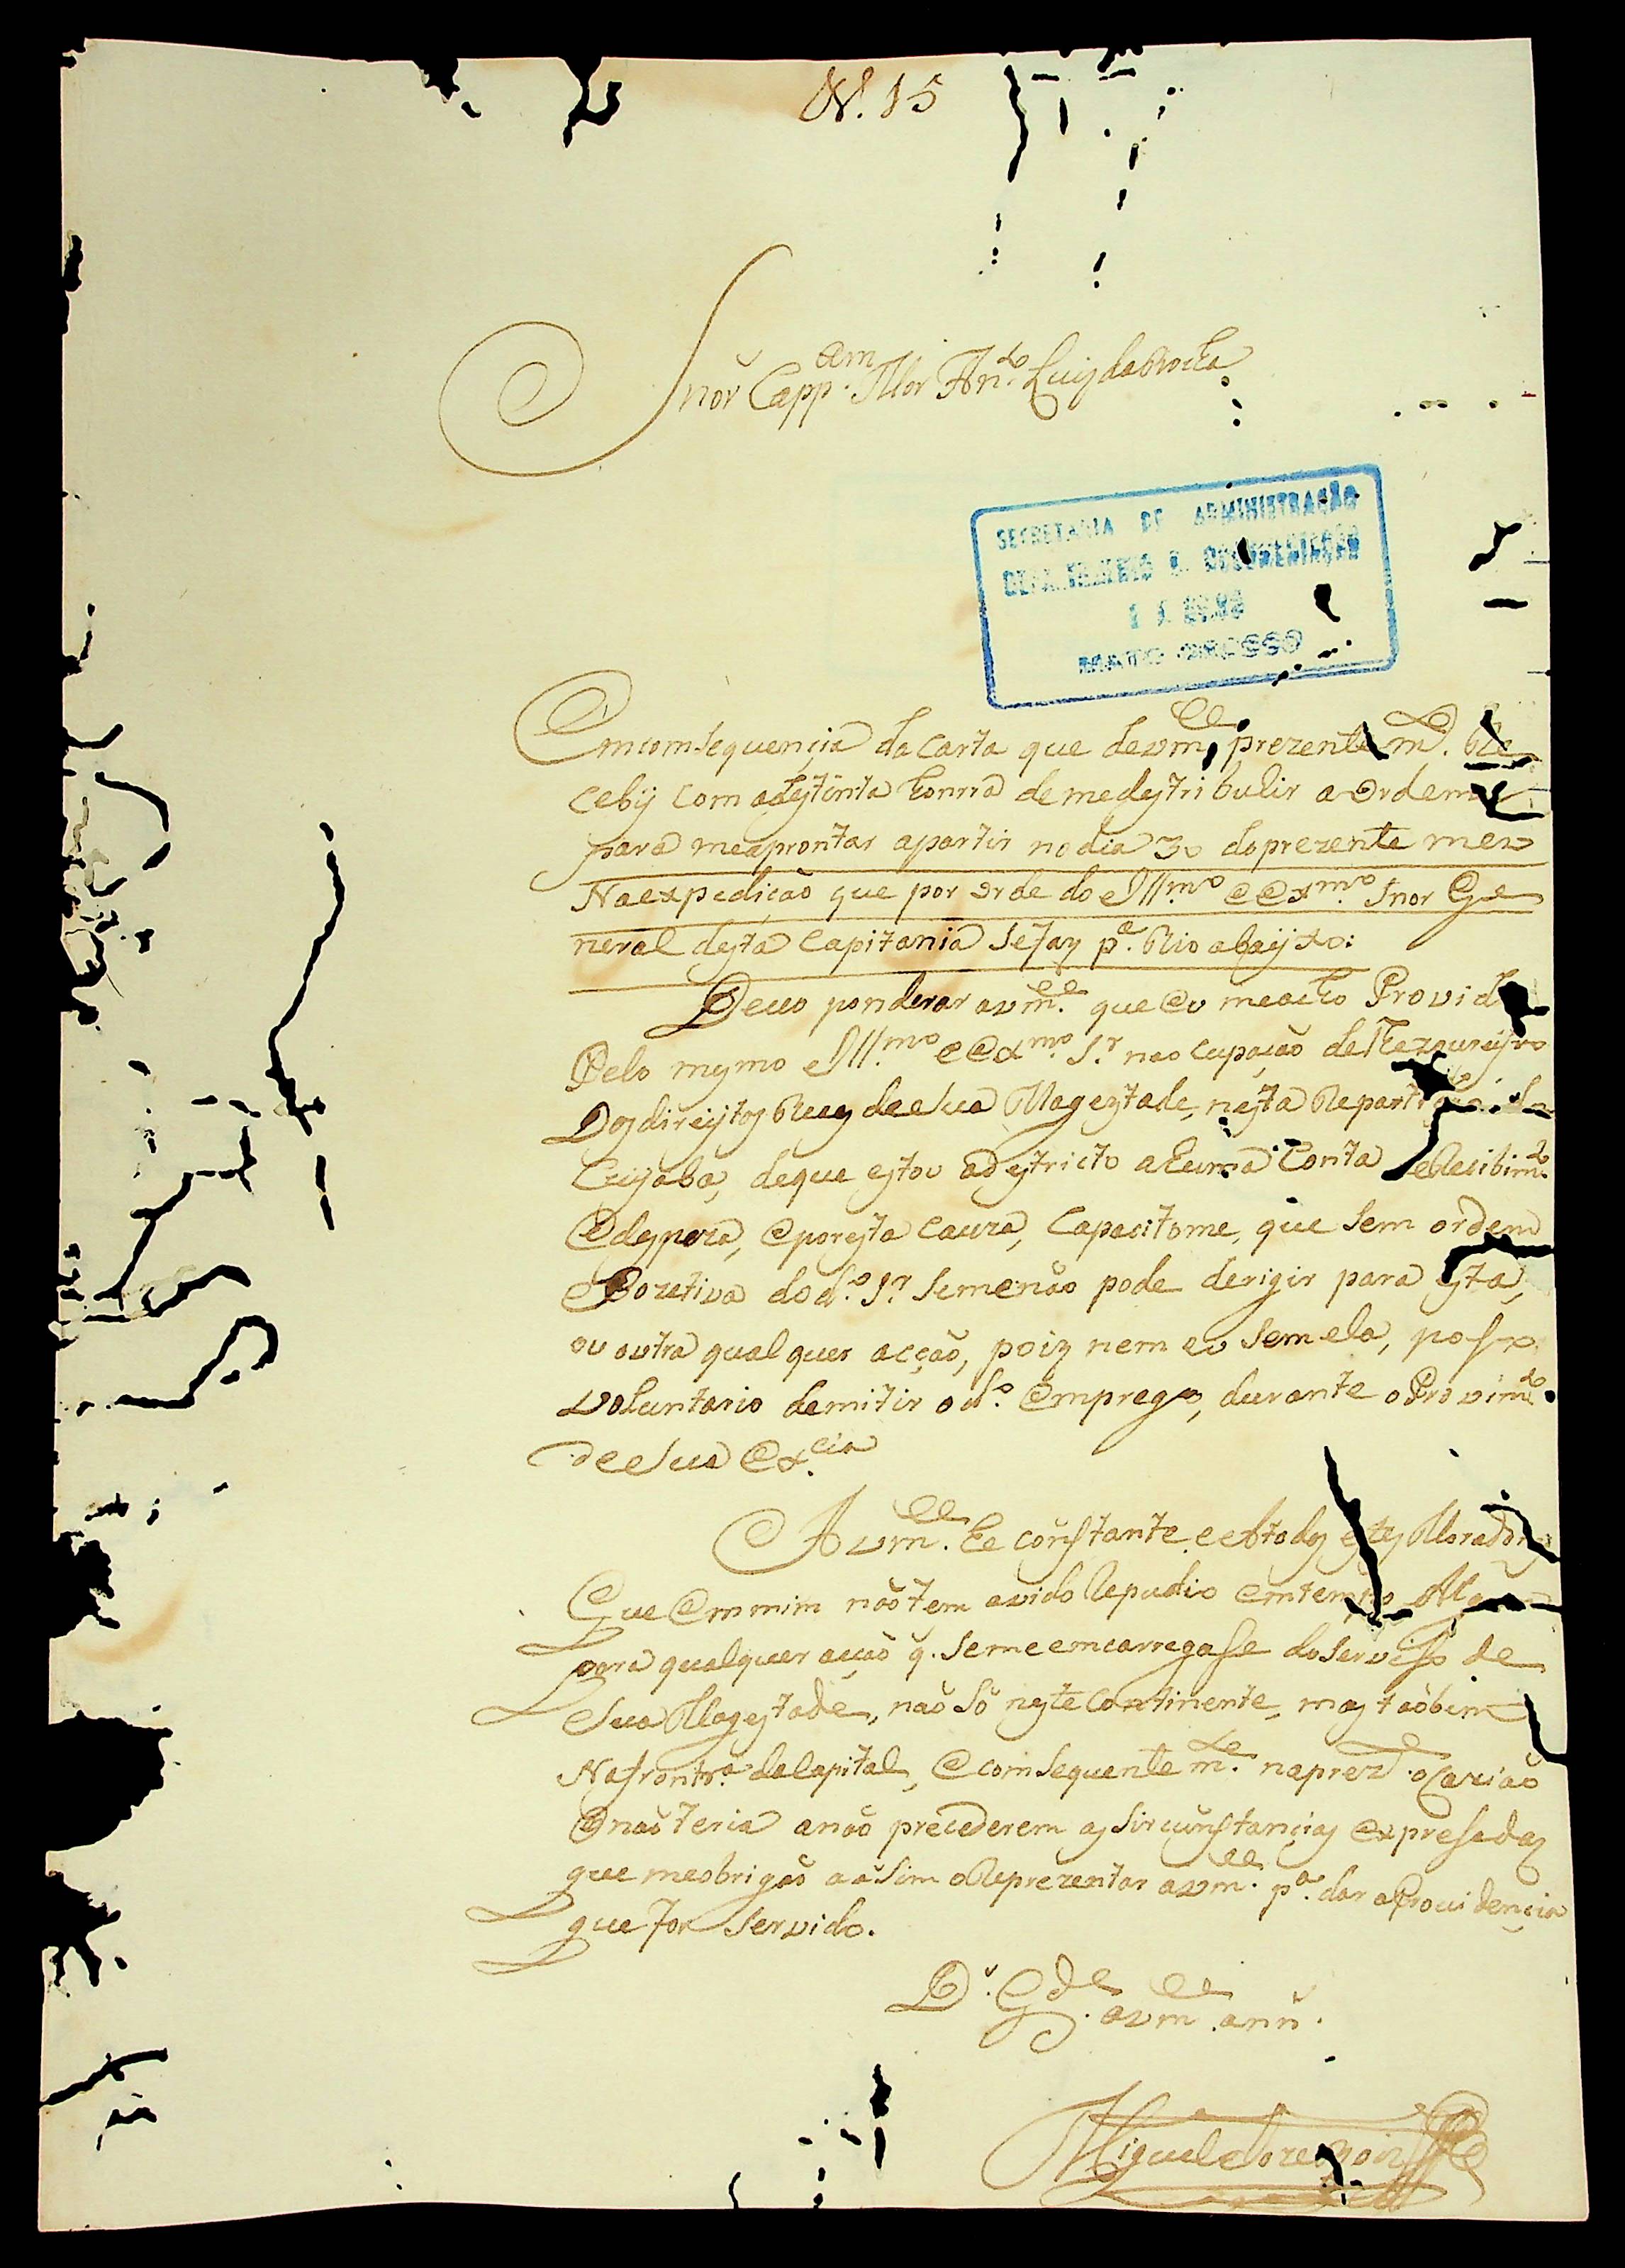 N. 15
Snõr Capp.am Mor Anto. Luiz da Rocha
SECRETARIA DE ADMINISTRAÇÃO
DEPARTAMENTO DE DOCUMENTAÇÃO
MATO GROSSO
Emcomsequençia da Carta que devmce, prezentemde. Re
cebij com adestinta honrra de medestribulir a Ordem
para meaprontar apartir nodia 30 doprezente mez
Naexpedição que por orde do Illmo. e Exmo. Snor Ge
neral desta Capitania sefaz pa. Rio abayxo:
Devo ponderar avmce. que Eu meacho Provid
Pelo mesmo Illmo. e Exmo. Sr. nao cupação de Thezoureyro
Dos direytos Reaes de Sua Magestade, nesta Repartição do
Cuyaba, deque estou adestricto ahuma Conta de Recibimto.
E despeza, E poresta cauza, Capacitome, que sem ordem
Pozetiva do do. Sr. semenão pode derigir para esta,
ou outra qual quer acção, poiz nem eu sem ela, posso
voluntario demitir o do. Emprego, durante o Provimto.
de Sua Excia.
A vmce. he constante, e atodos estes Moradores
Que Emmim nãotem avido Repudio emtempo Algum
para qualquer acção q. semeemcarregasse doserviço de
Sua Magestade, não só neste Continente, mas taobem
Nafrontra. da Capital, E comsequentemte. naprezde. ocazião
O não teria anão precederem as sircunstançias expresadas
que meobrigão a asim o Reprezentar avmce. pa. dar a Providençia
que for servido.
Ds. Gde. avmce. anns.
Miguel Joze Roiz